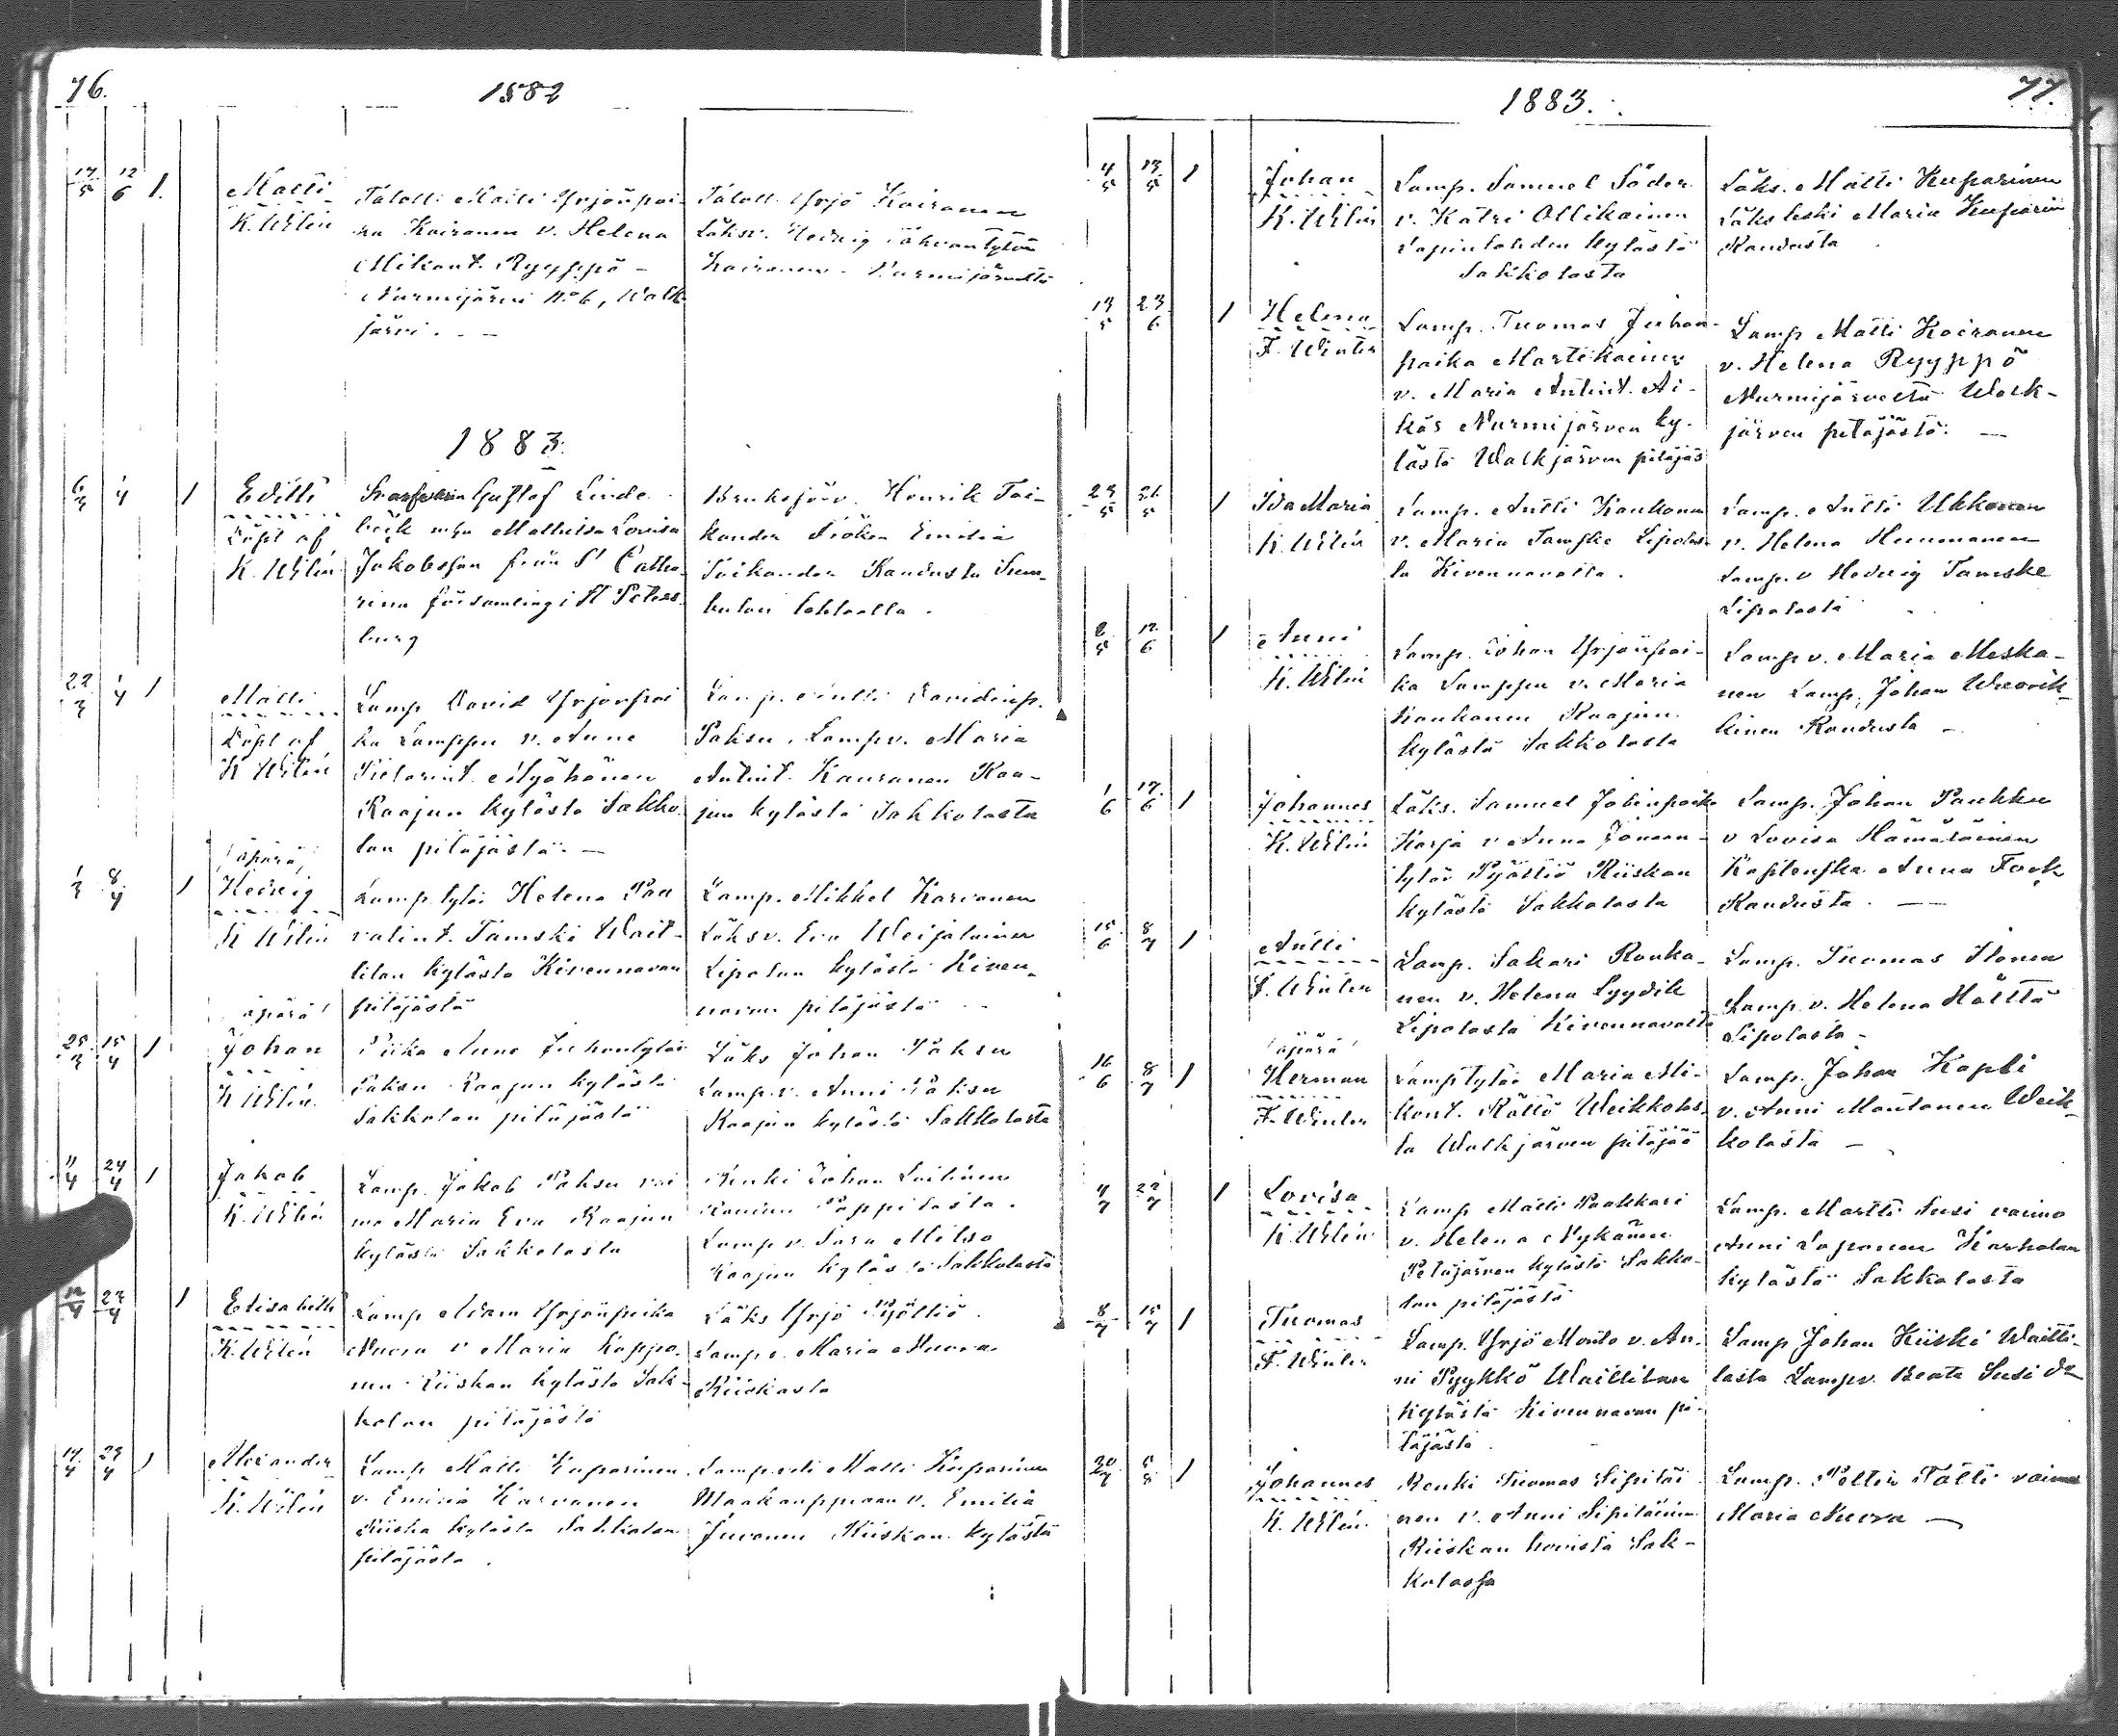 76.
1882
17/5 12/6 1.
Matti
K. Wilén
Taloll. Matti Yrjönpoi-
ka Koiranen v. Helena
Mikont. Ryyppö -
Nurmijärvi No 6, Walk
järvi. -
Taloll. Yrjö Koiranen
Läksv. Hedvig Juhontytär
Koiranen - Nurmijärveltä
1883.
6/3 1/4 1
Edith
Döpt af
K. Wilén
Gustaf Linde
bäck m. hu Mathilda Lovisa
Jakobsson från St Catha
rina församling i St Peters
burg
Bruksförv. Henrik Toi-
kander Fröken Emilia
Toikander Raudusta Sum-
bulan tehtaalla.
22/3 1/4 1
Matti
Döpt af
K Wilén
Lamp David Yrjönpoi
ka Lamppu v. Anne
Pietarint. Myöhänen
Raajun kylästä Sakko
lan pitäjästä. -
Lamp. Antti Davidinp.
Paksu. Lampv. Maria
Antint. Kauranen Raa-
jun kylästä Sakkolasta
1/3 8/4 1
äpärä
Hedvig
K Wilén
Lamp. tytär Helena Paa
valint. Tamski Wait-
tilan kylästä Kivennavan
pitäjästä
Lamp. Mikkel Karvanen
Läksv. Eva Weijalainen
Lipolan kylästä Kiven-
navan pitäjästä
25/3 15/4 1
äpärä
Johan
K Wilén.
Piika Anna Juhontytär
Paksu Raajun kylästä
Sakkolan pitäjästä
Läks Johan Paksu
Lamp. v. Anni Paksu
Raajun kylästä Sakkolasta
11/4 24/4 1
Jakob
K. Wilén
Lamp. Jakob Paksu vai
mo Maria Eva Raajun
kylästä Sakkolasta
Renki Johan Laitinen
Raudun Pappilasta.
Lamp v. Sara Metso
Raajun kylästä Sakkolasta
1
Elisabeth
K. Wilén
Lamp Adam Yrjönpoika
Nuora v Maria Kappo
nen Riiskan kylästä Sak-
kolan pitäjästä
Läks Yrjö Pyöttiö.
Lamp v. Maria Nuora
Riiskasta
14/4 29/4 1
Alexander
K. Wilén
Lamp Matti Kuparinen
v. Emilia Karvanen
Riiska kylästä Sakkolan
pitäjästä.
Lampuoti Matti Kuparinen
Maakauppiaan v. Emilia
Juvonen Riiskan kylästä
77.
1883.
4/5 13/5 1
Johan
K. Wilén
Lamp. Samuel Söder
v. Katri Ollikainen
Lapinlahden kylästä
Sakkolasta
Läks. Matti Kuparinen
Läks leski Maria Kuparin
Raudusta
13/5 23/6 1
Helena
F. Winter
Lamp. Tuomas Juhon-
poika Martikainen
v. Maria Antint. Äi-
käs Nurmijärven ky-
lästä Walkjärven pitäjäs
Lamp Matti Koiranen
v. Helena Ryyppö
Nurmijärveltä Walk-
järven pitäjästä. -
1
Ida Maria
K. Wilén
Lamp. Antti Kaukonen
v. Maria Tamske Lipolas-
ta Kivennavalla.
Lamp. Antti Ukkonen
v. Helena Huumonen
Lamp. v Hedvig Tamske
Lipolasta
2/5 12/6 1
Anni
K. Wilén
Lamp. Johan Yrjönpoi-
ka Lamppu v. Maria
Kaukonen Raajun
kylästä Sakkolasta
Lamp v. Maria Meska-
nen Lamp. Johan Wuorik-
kinen Raudusta -
1/6 17/6 1
Johannes
K. Wilén
Läks. Samuel Jobinpoika
Karja v Anna Joonan-
tytär Pyöttiö Riiskan
kylästä Sakkolasta
Lamp. Johan Paukku
v Lovisa Hämäläinen
Anna Fock
Raudusta. -
15/6 8/7 1
Antti
F. Winter
Lamp. Sakari Rouka-
nen v. Helena Lyydik
Lipolasta Kivennavalta
Lamp. Tuomas Ilonen
Lamp v. Helena Hättö
Lipolasta -
16/6 8/7 1
äpärä
Herman
F. Winter
Lamptytär Maria Mi-
kont. Rättö Weikkolas
ta Walkjärven pitäjää
Lamp. Johan Kopli
v. Anni Moutonen Weik-
kolasta -
4/7 22/7 1
Lovisa
K. Wilén
Lamp Matti Paakkari
v. Helena Nykänen
Petäjärven kylästä Sakko-
lan pitäjästä
Lamp. Martti Susi vaimo
Anni Loponen Karholan
kylästä Sakkolasta
8/7 15/7 1
Tuomas
F. Winter
Lamp. Yrjö Monto v. An-
ni Pyykkö Waittilan
kylästä Kivennavan pi-
täjästä.
Lamp Johan Kiiski Waitti-
lasta Lampv. Beata Susi
1
Johannes
K. Wilén.
Renki Tuomas Sipiläi
nen v. Anni Sipiläinen
Riiskan hovista Sak-
kolassa
Lamp. Petter Tätti vaimo
Maria Nuora -